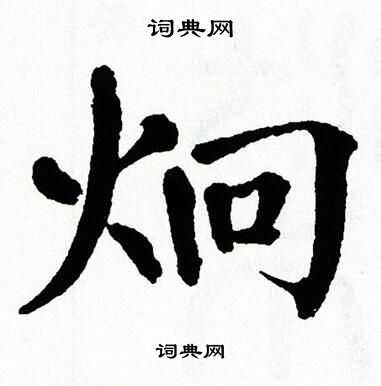 词典网
炯
词典网